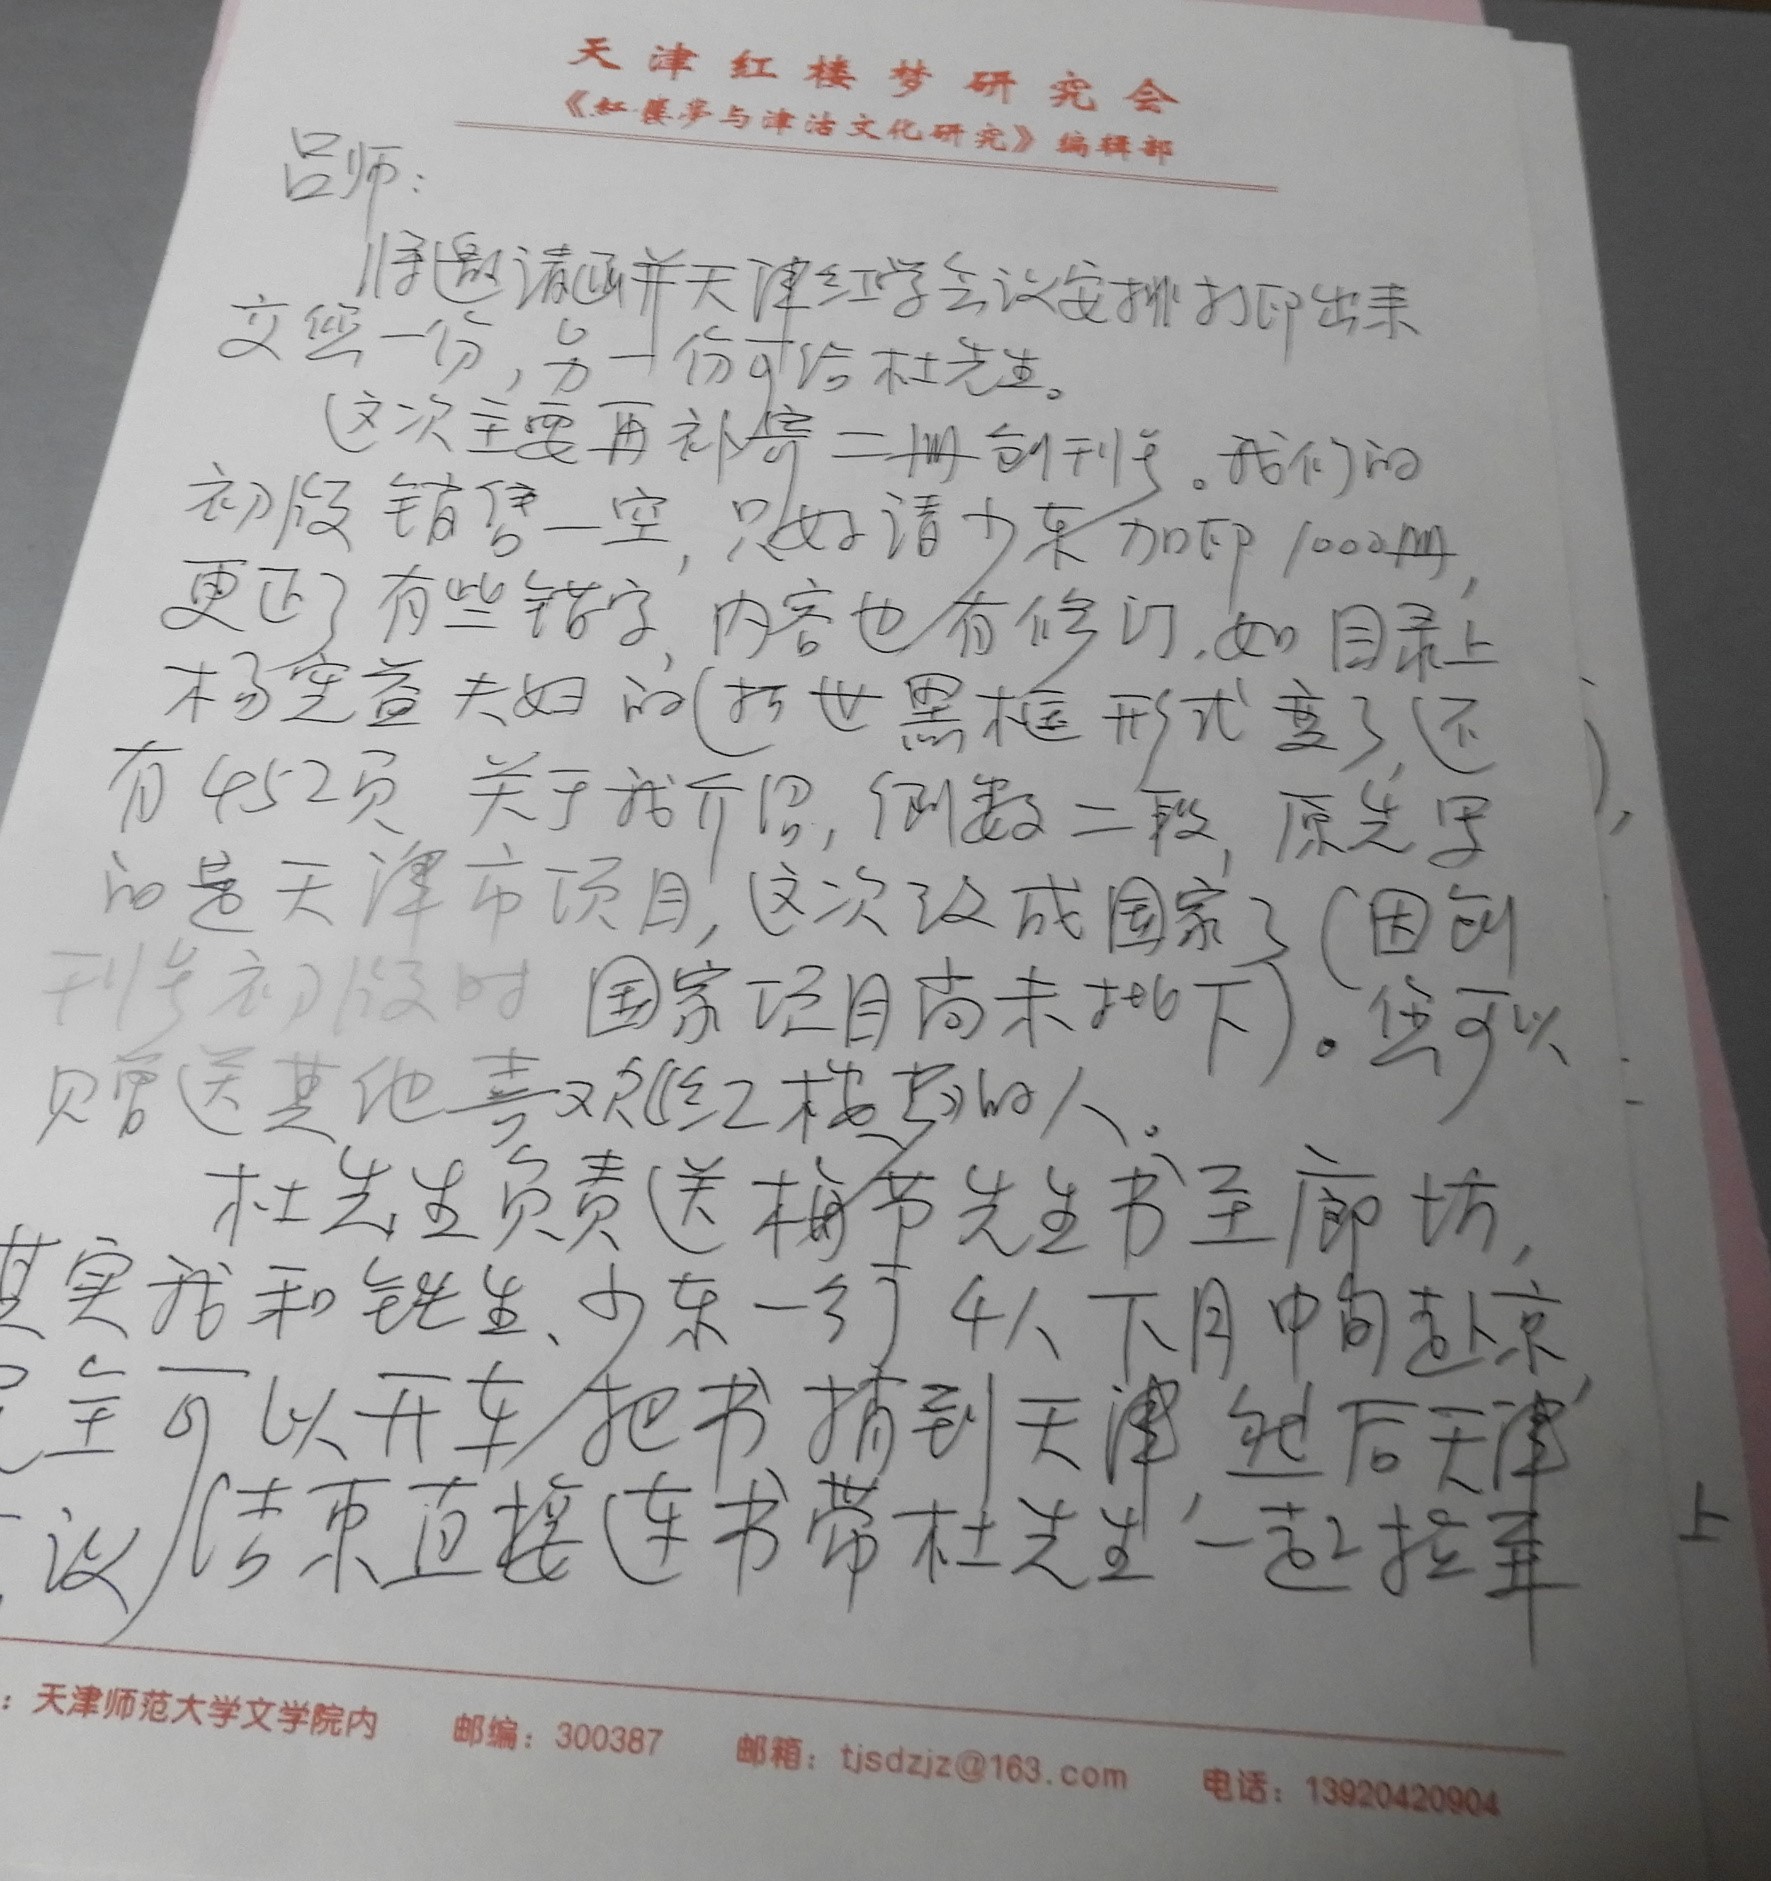 天津红楼梦研究会
《红楼夢与津沽文化研究》编辑部
吕师：
将邀请函并天津红学会议安排打印出来
交您一份，另一份可给杜先生。
这次主要再补寄二册创刊号。我们的
初版销售一空，只好请少东加印1000册，
更正了有些错字，内容也有修订，如目录上
杨宪益夫妇的
世黑框形式变了，还
有452页关于我介绍，倒数二段，原先写
的是天津市项目，这次改成国家了（因创
刊号初版时国家项目尚未批下）。您可以
赠送其他喜欢红楼梦的人。
杜先生负责送梅节先生书至廊坊，
其实我和铁生、少东一行4人下月中旬赴京，
完全可以开车把书捎到天津，然后天津
议结束直接连书带杜先生一起拉
上
：天津师范大学文学院内 邮编：300387 邮箱：tjsdzjz@163.com 电话：13920420904